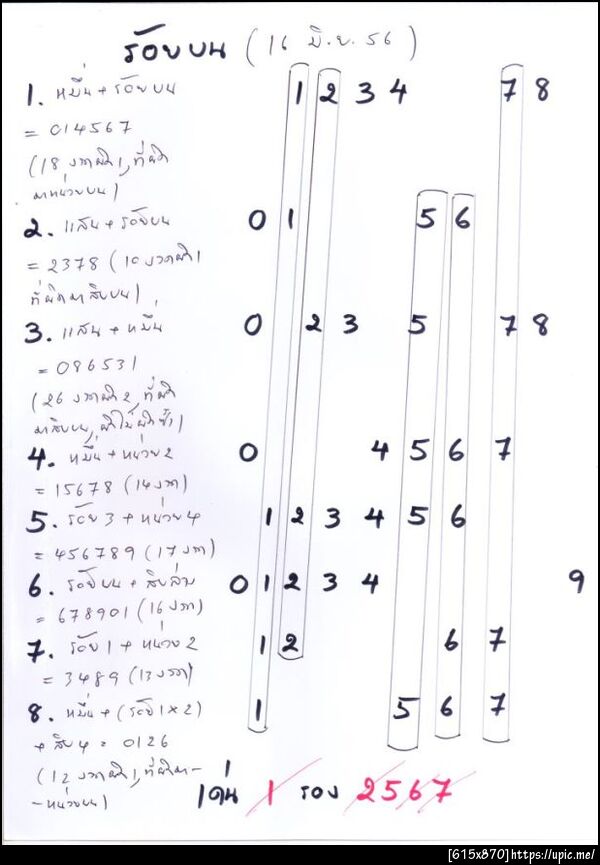 ร้อยบน (16 มิ.ย. 56)
1. หมื่น + ร้อยบน 1 2 3 4 7 8
= 014567
(18 งวดผิด 1, ที่ผิด
มาหน่วยบน)
2. แสน + ร้อยบน 0 1 5 6
= 2378 (10 งวดผิด 1
ที่ผิดมาสิบบน)
3. แสน + หมื่น 0 2 3 5 7 8
= 096531
(26 งวดผิด 2, ที่ผิด
มาสิบบน, ผิดไม่ผิดซ้ำ)
4. หมื่น + หน่วย 2 0 4 5 6 7
= 15678 (14 งวด)
5. ร้อย 3 + หน่วย 4 1 2 3 4 5 6
= 456789 (17 งวด)
6. ร้อยบน + สิบล่าง 0 1 2 3 4 9
= 678901 (16 งวด)
7. ร้อย 1 + หน่วย 2 1 2 6 7
= 3489 (13 งวด)
8. หมื่น + (ร้อย 1 x 2) 1 5 6 7
+ สิบ 4 = 0126
(12 งวดผิด 1, ที่ผิดมา-
-หน่วยบน)
เด่น 1 รอง 2567
[615x870]https://upic.me/